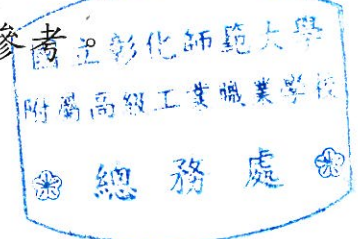 參考。
國立彰化師範大學
附屬高級工業職業學校
總務處